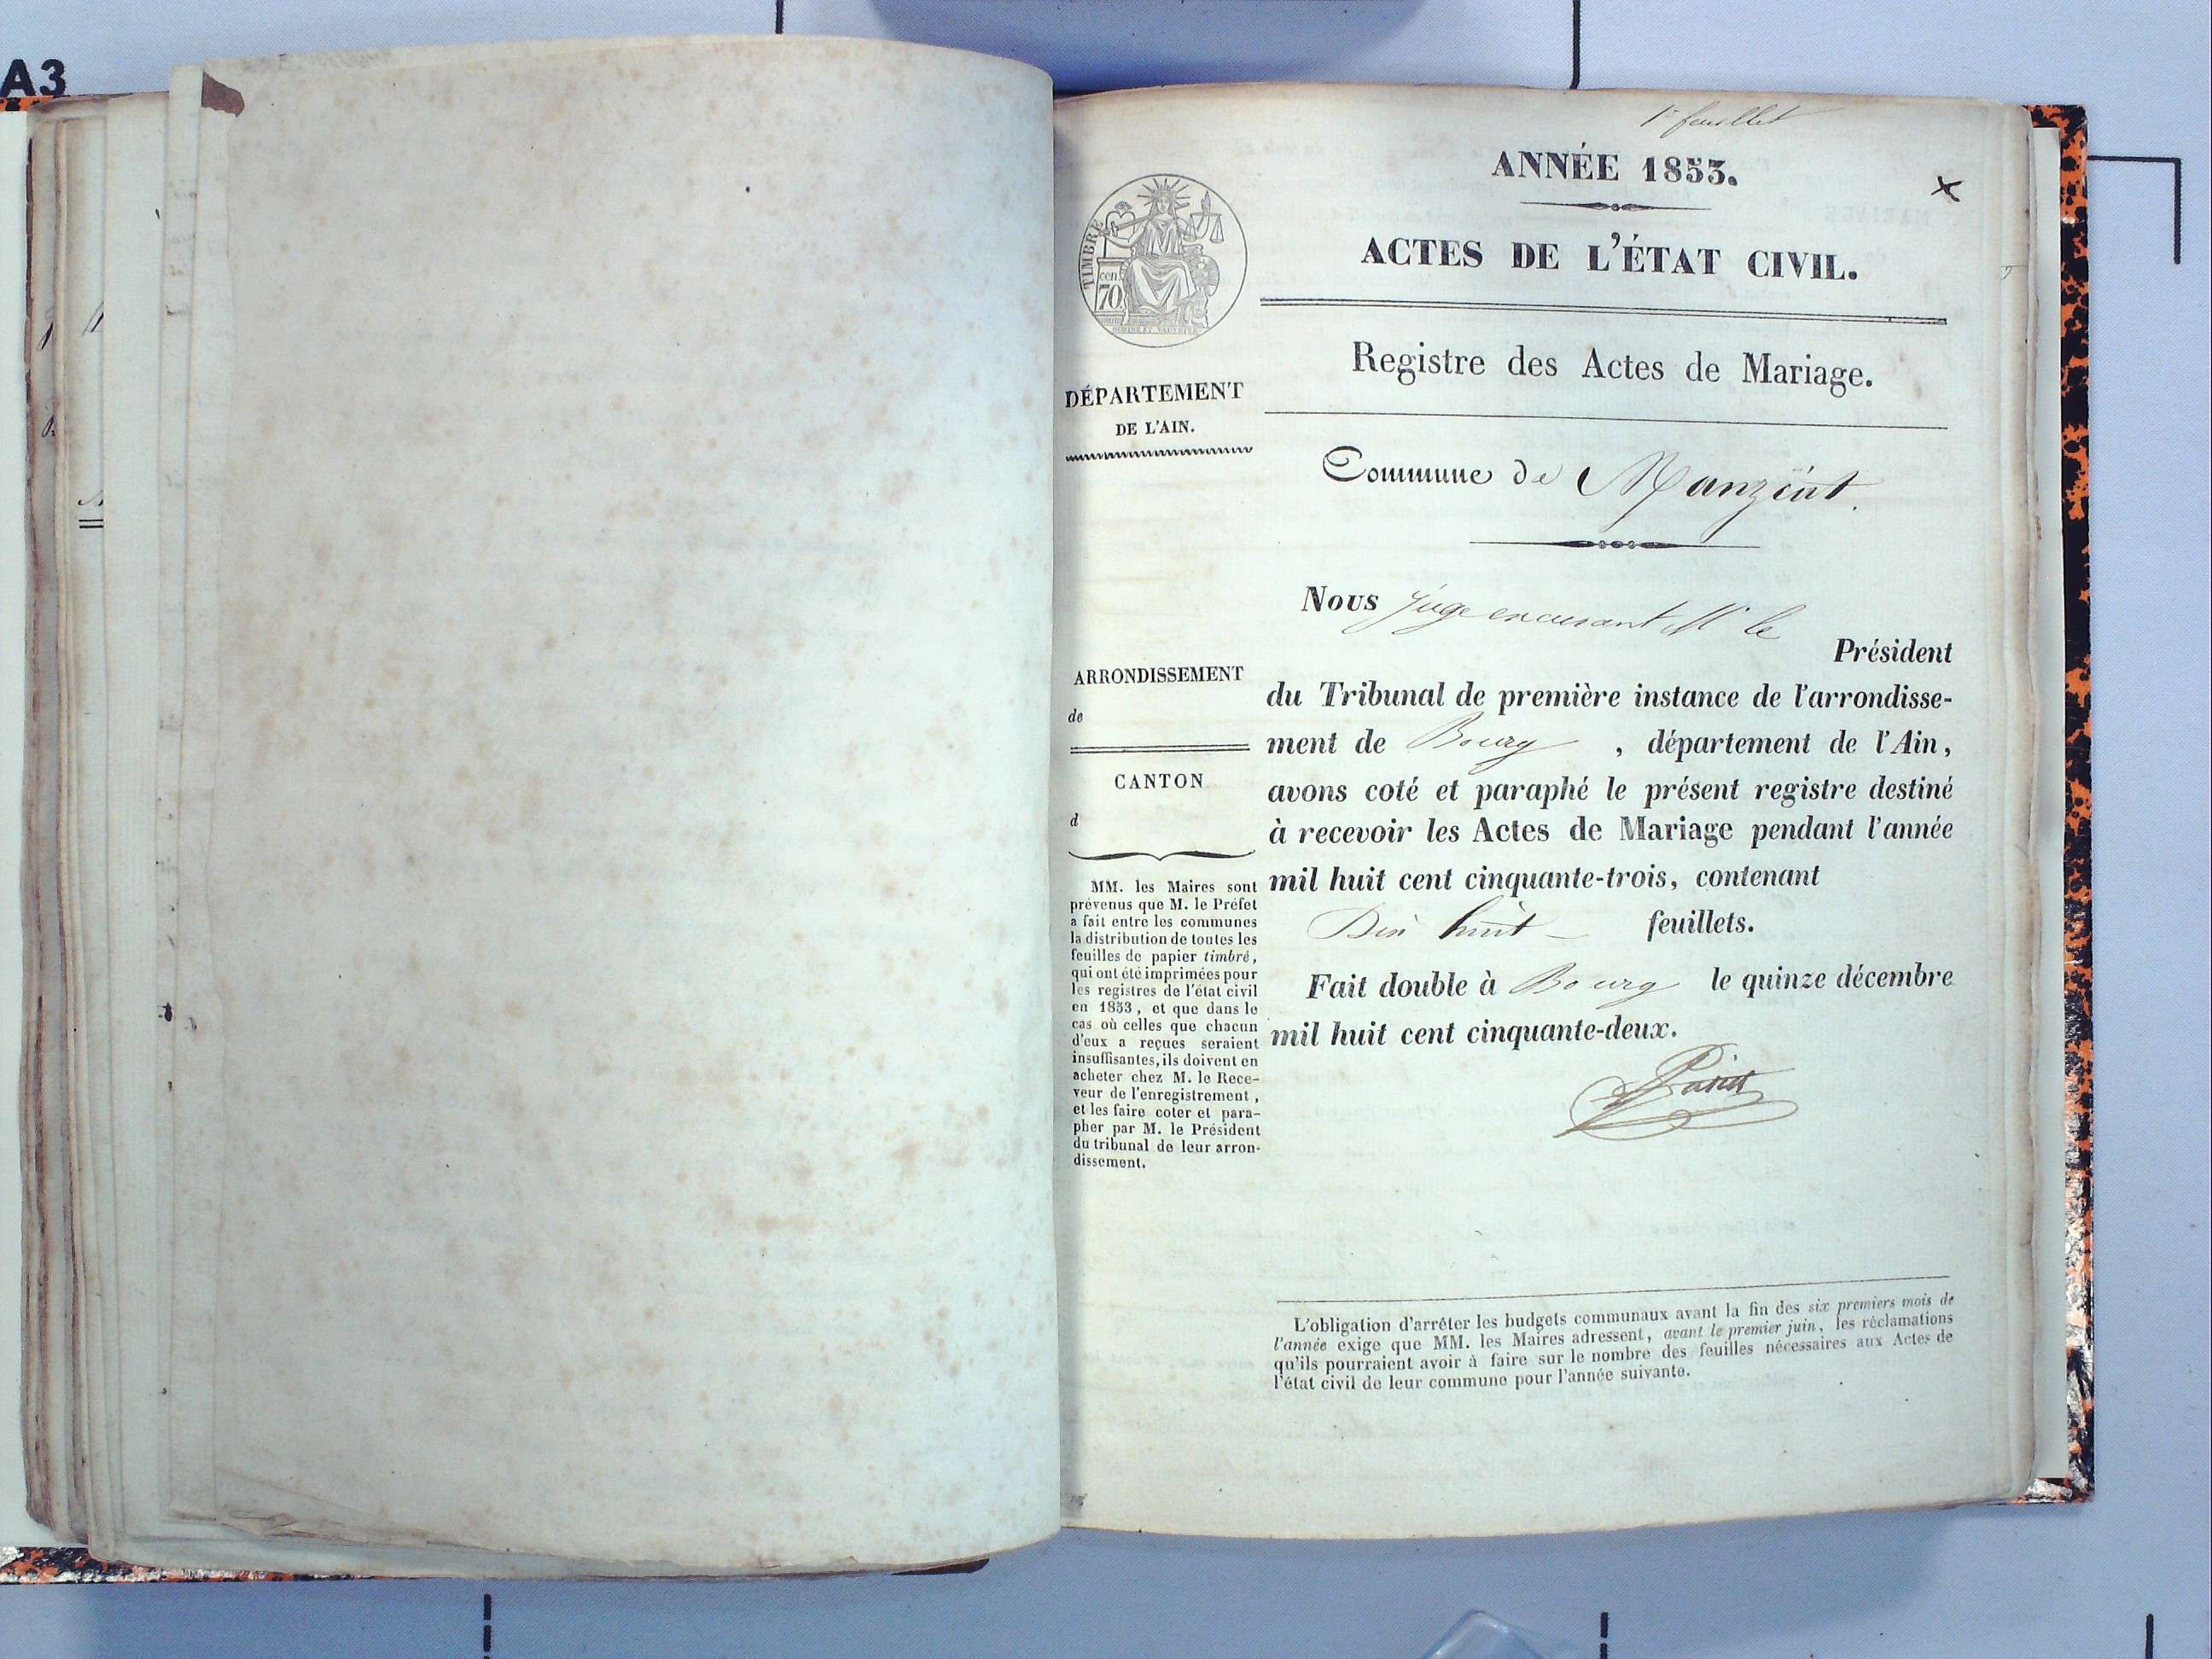 A3
1er feuillet
ANNÉE 1853.
ACTES DE L'ÉTAT CIVIL.
TIMBRE
cen
70
Registre des Actes de Mariage.
DÉPARTEMENT
DE L'AIN.
Commune de Manziat.
Nous Juge excusant Mr le
Président
du Tribunal de première instance de l'arrondisse-
ment de Bourg , département de l'Ain,
avons coté et paraphé le présent registre destiné
à recevoir les Actes de Mariage pendant l'année
mil huit cent cinquante-trois, contenant
Dix huit feuillets.
Fait double à Bourg le quinze décembre
mil huit cent cinquante-deux.
ARRONDISSEMENT
de
CANTON
d
MM. les Maires sont
prévenus que M. le Préfet
a fait entre les communes
la distribution de toutes les
feuilles de papier timbré,
qui ont été imprimées pour
les registres de l'état civil
en 1853, et que dans le
cas où celles que chacun
d'eux a reçues seraient
insuffisantes, ils doivent en
acheter chez M. le Rece-
veur de l'enregistrement,
et les faire coter et para-
pher par M. le Président
du tribunal de leur arron-
dissement.
L'obligation d'arrêter les budgets communaux avant la fin des six premiers mois de
l'année exige que MM. les Maires adressent, avant le premier juin, les réclamations
qu'ils pourraient avoir à faire sur le nombre des feuilles nécessaires aux Actes de
l'état civil de leur commune pour l'année suivante.